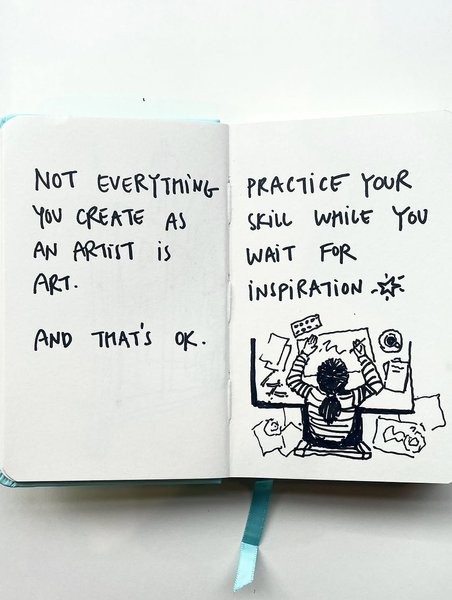 NOT EVERYTHING
YOU CREATE AS
AN ARTIST IS
ART.
AND THAT'S OK.
PRACTICE YOUR
SKILL WHILE YOU
WAIT FOR
INSPIRATION